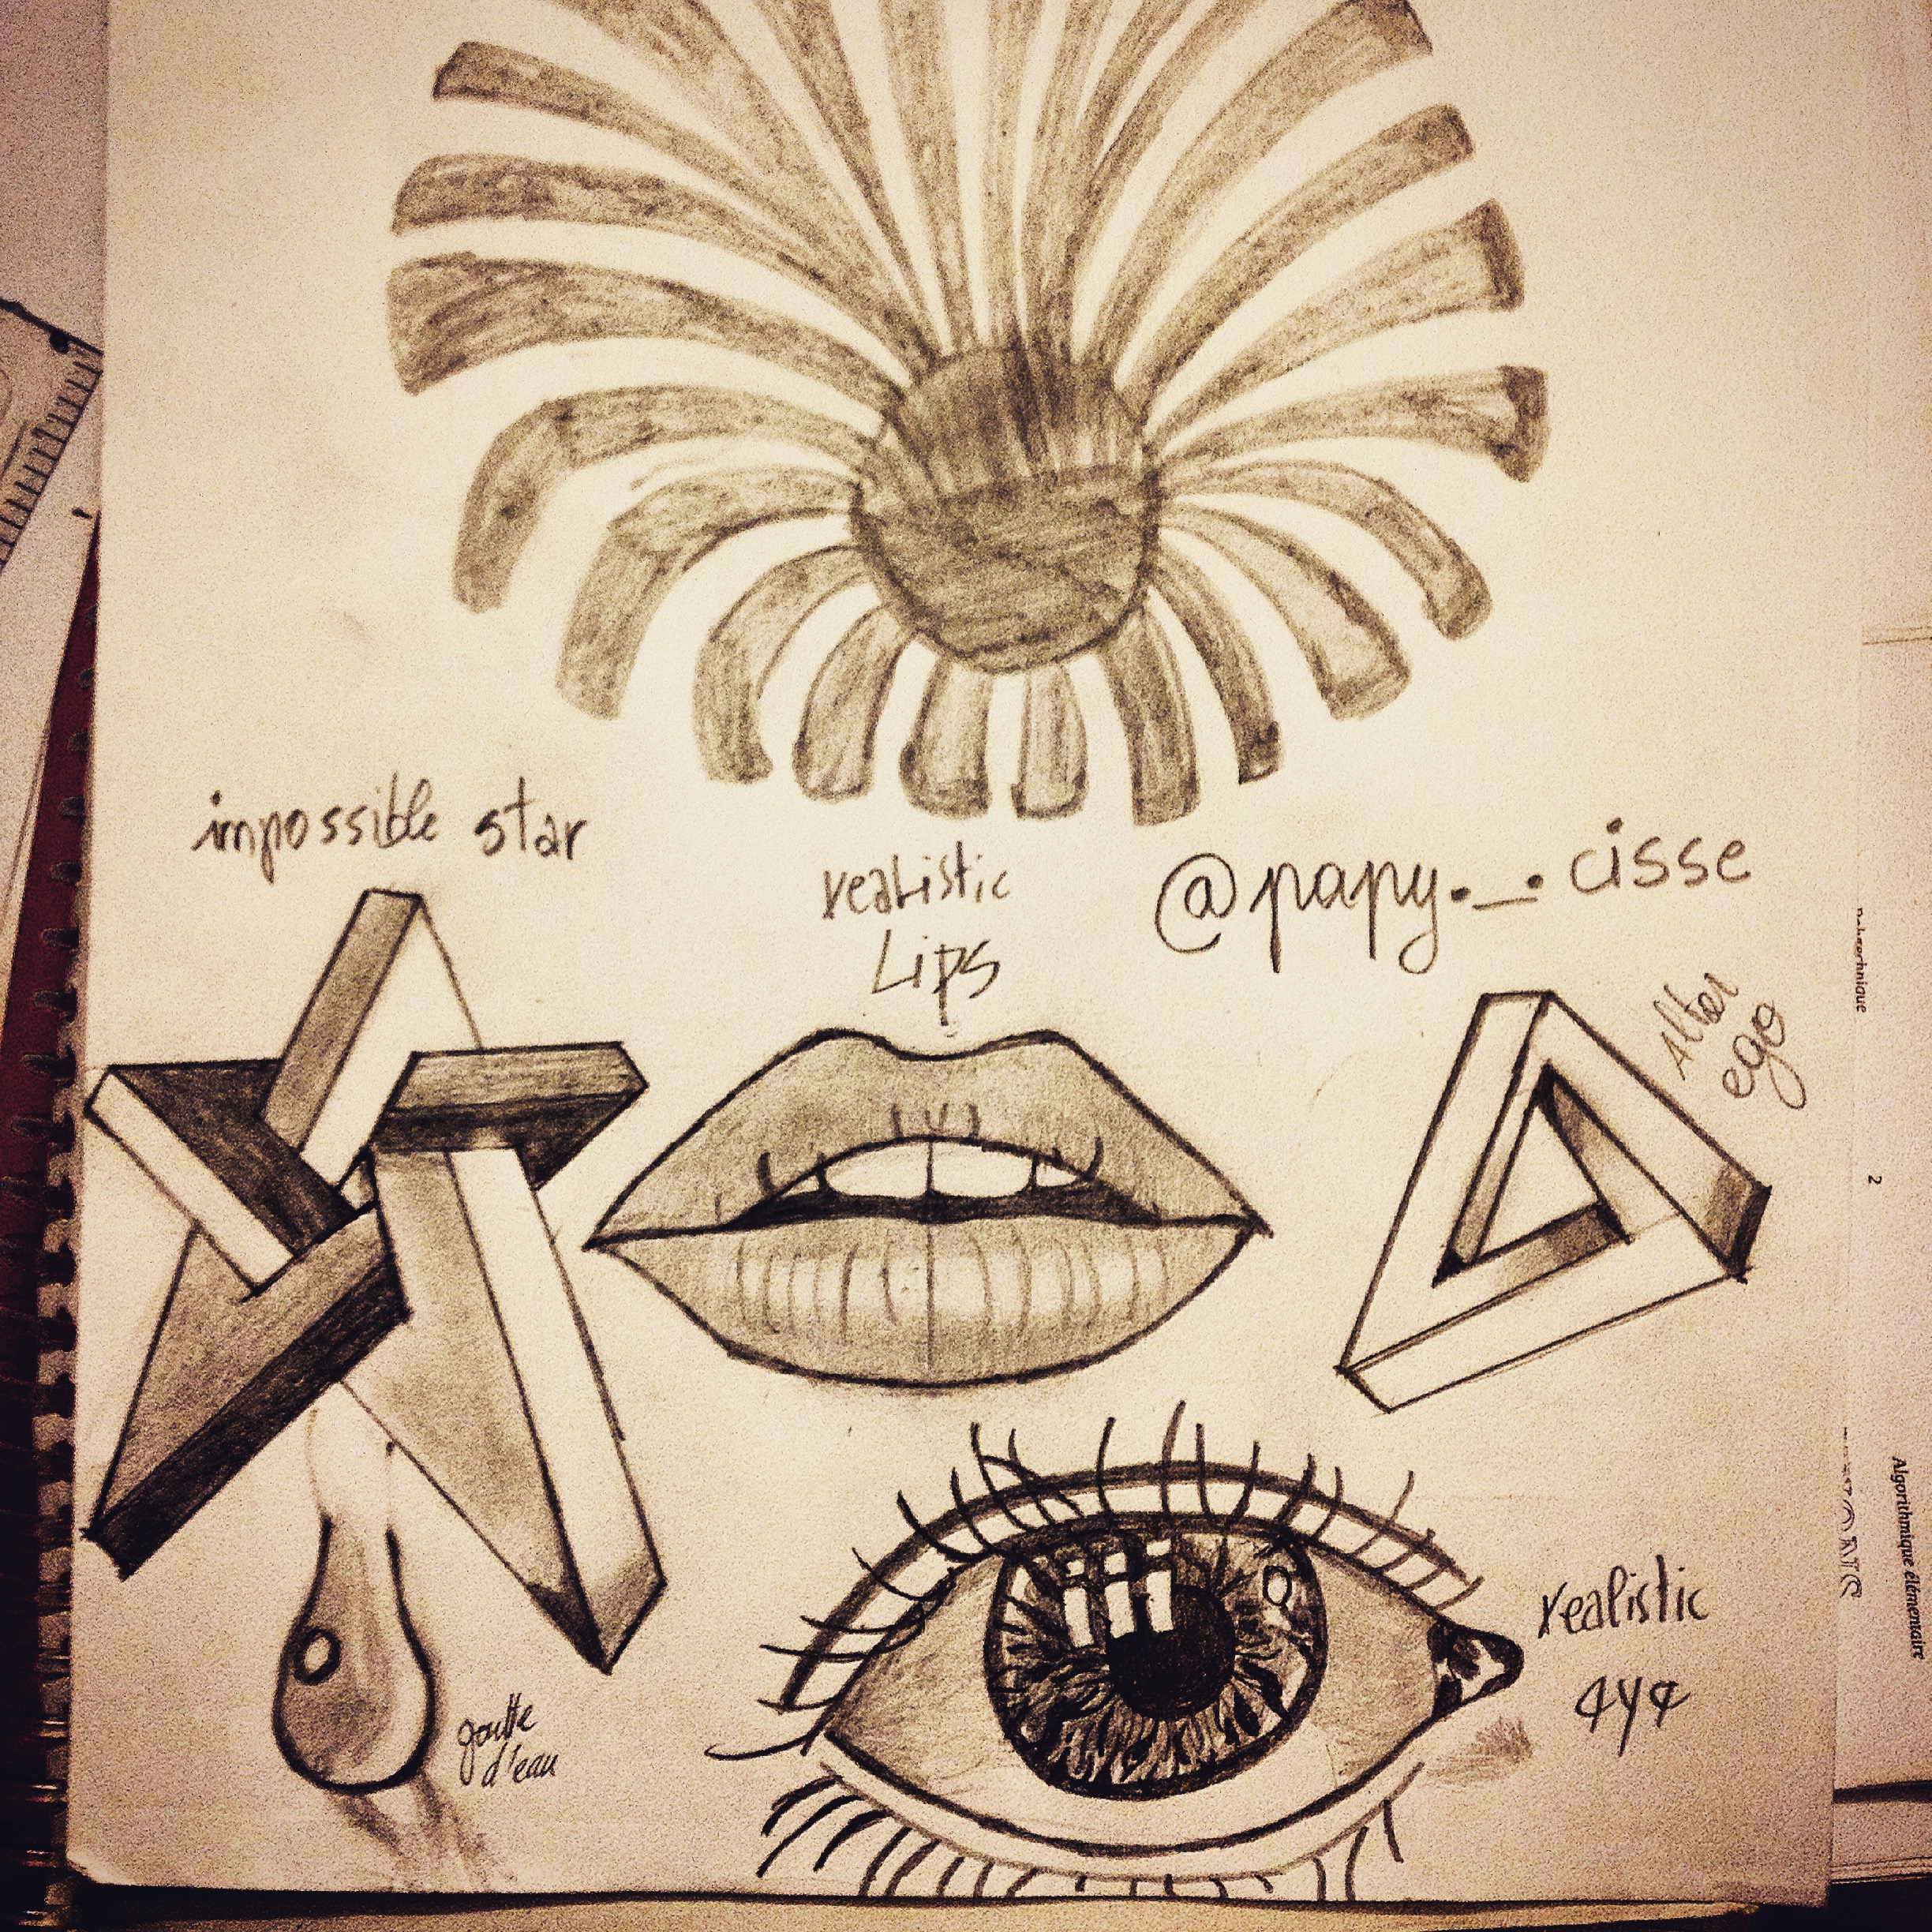 impossible star
realistic
Lips
@papy._.cisse
Alter
ego
goutte
d'eau
realistic
eye
2
Algorithmique élémentaire